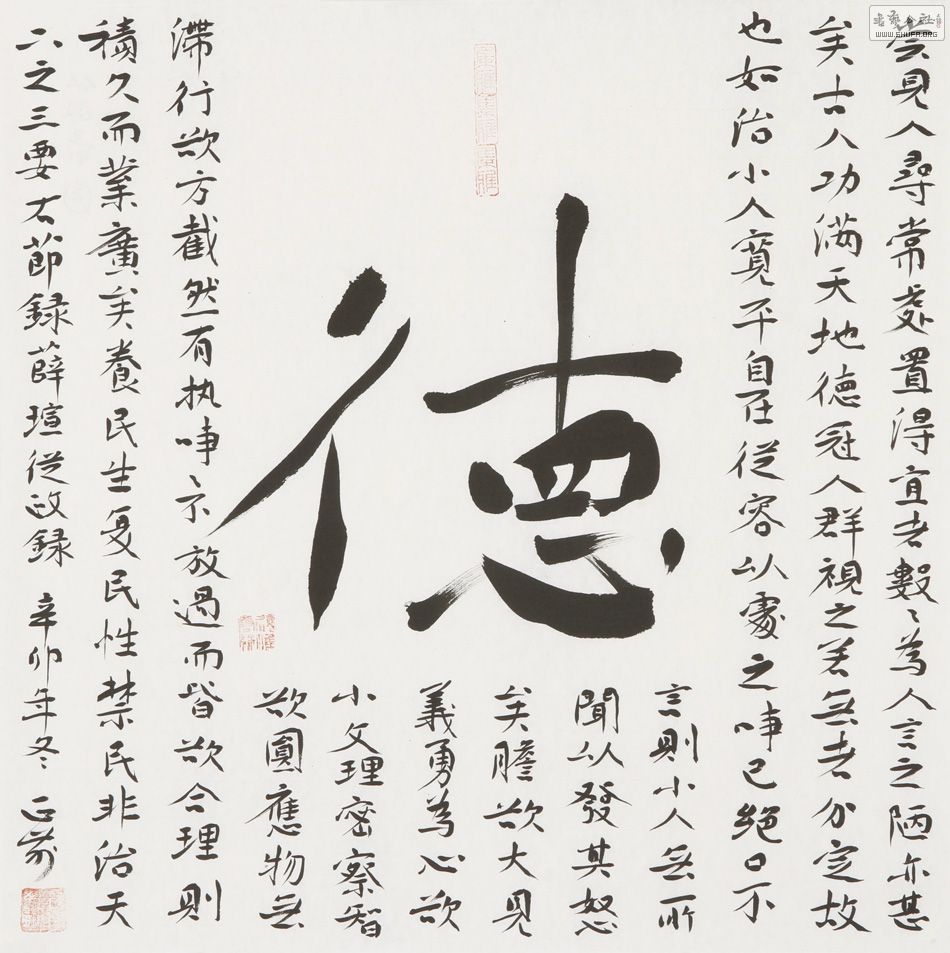 嘗見人尋常處置得宜者數々為人言之陋亦甚
矣古人功滿天地德冠人群視之若無者分定故
也如治小人寬平自在從容以處之事已絕口不
言則小人無所
聞以發其怒
矣膽欲大見
義勇為心欲
小文理密察智
欲圓應物無
滯行欲方截然有执事々不放過而皆欲合理則
積久而業廣矣養民生复民性禁民非治天
下之三要右節錄薛瑄從政錄 辛卯年冬
德
WWW.SHUFA.ORG